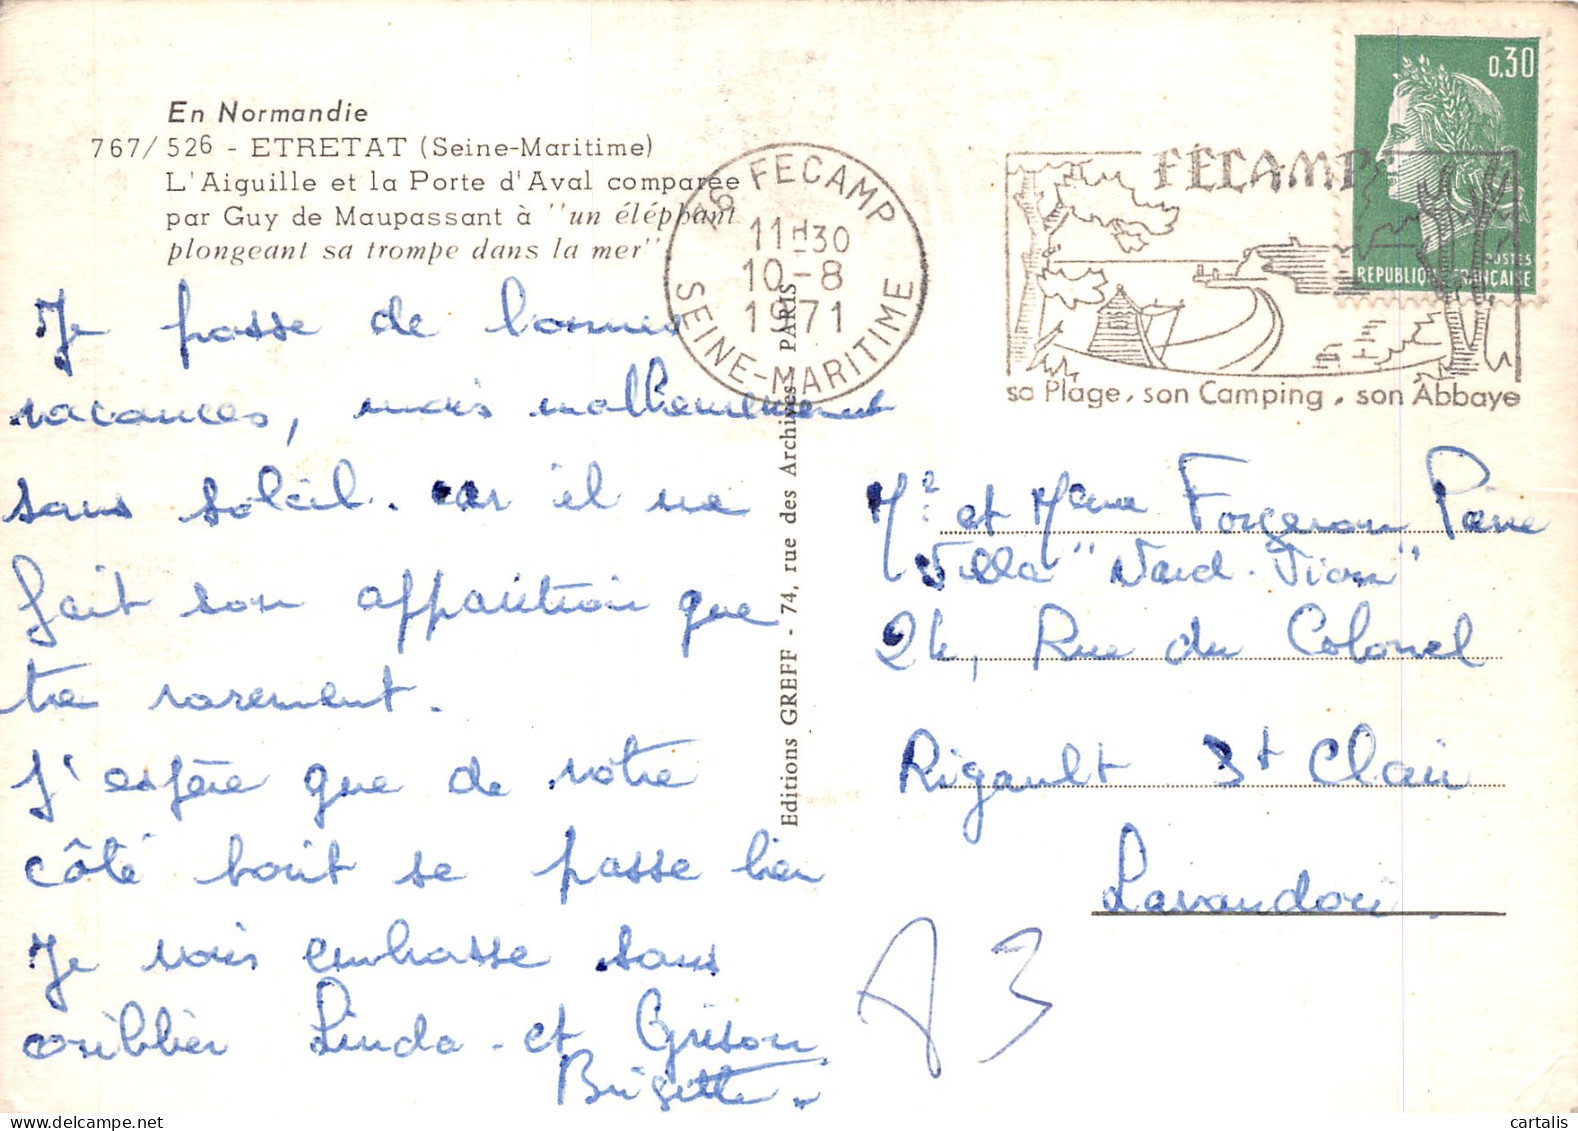 En Normandie
767/526 - ETRETAT (Seine-Maritime)
L'Aiguille et la Porte d'Aval comparée
par Guy de Maupassant à "un éléphant
plongeant sa trompe dans la mer"
Je passe de bonnes
vacances, mais malheureusement
sans soleil. car il ne
fait son apparition que
tre rarement.
J'espère que de votre
côté tout se passe bien
Je vous embrasse sans
oublier Linda et Grison
Brigitte
Editions GREFF - 74, rue des Archives - PARIS
76 FECAMP
11H30
10-8
1971
SEINE-MARITIME
FÉCAMP
sa Plage, son Camping, son Abbaye
0,30
POSTES
REPUBLIQUE FRANÇAISE
Mr et Mme Forgeron Pierre
Villa
24, Rue du Colonel
Rigault St Clair
Lavandou.
A3
cartalis